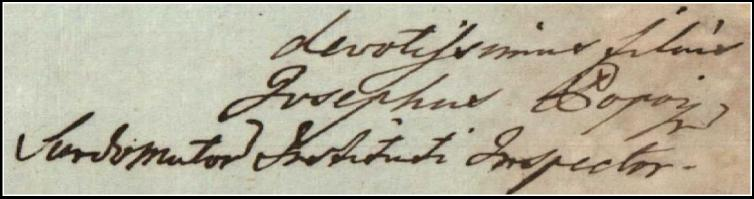 devotissimus filius
Josephus
Surdomutor Instituti Inspector.